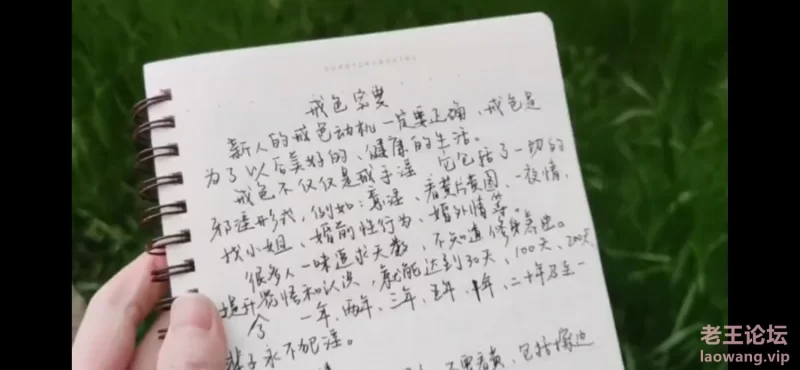 戒色宗要
新人的戒色动机一定要正确，戒色是
为了以后美好的、健康的生活。
戒色不仅仅是戒手淫，它包括了一切的
邪淫形式，例如：意淫、看黄片黄图、一夜情，
找小姐、婚前性行为、婚外情等。
很多人一味追求天数，不知道修身养
提升觉悟和认识，就能达到30天，100天，200天
一年，两年、三年、五年、十年、二十年乃至一
辈子永不犯淫。
不要看黄，包括擦边
老王论坛
laowang.vip